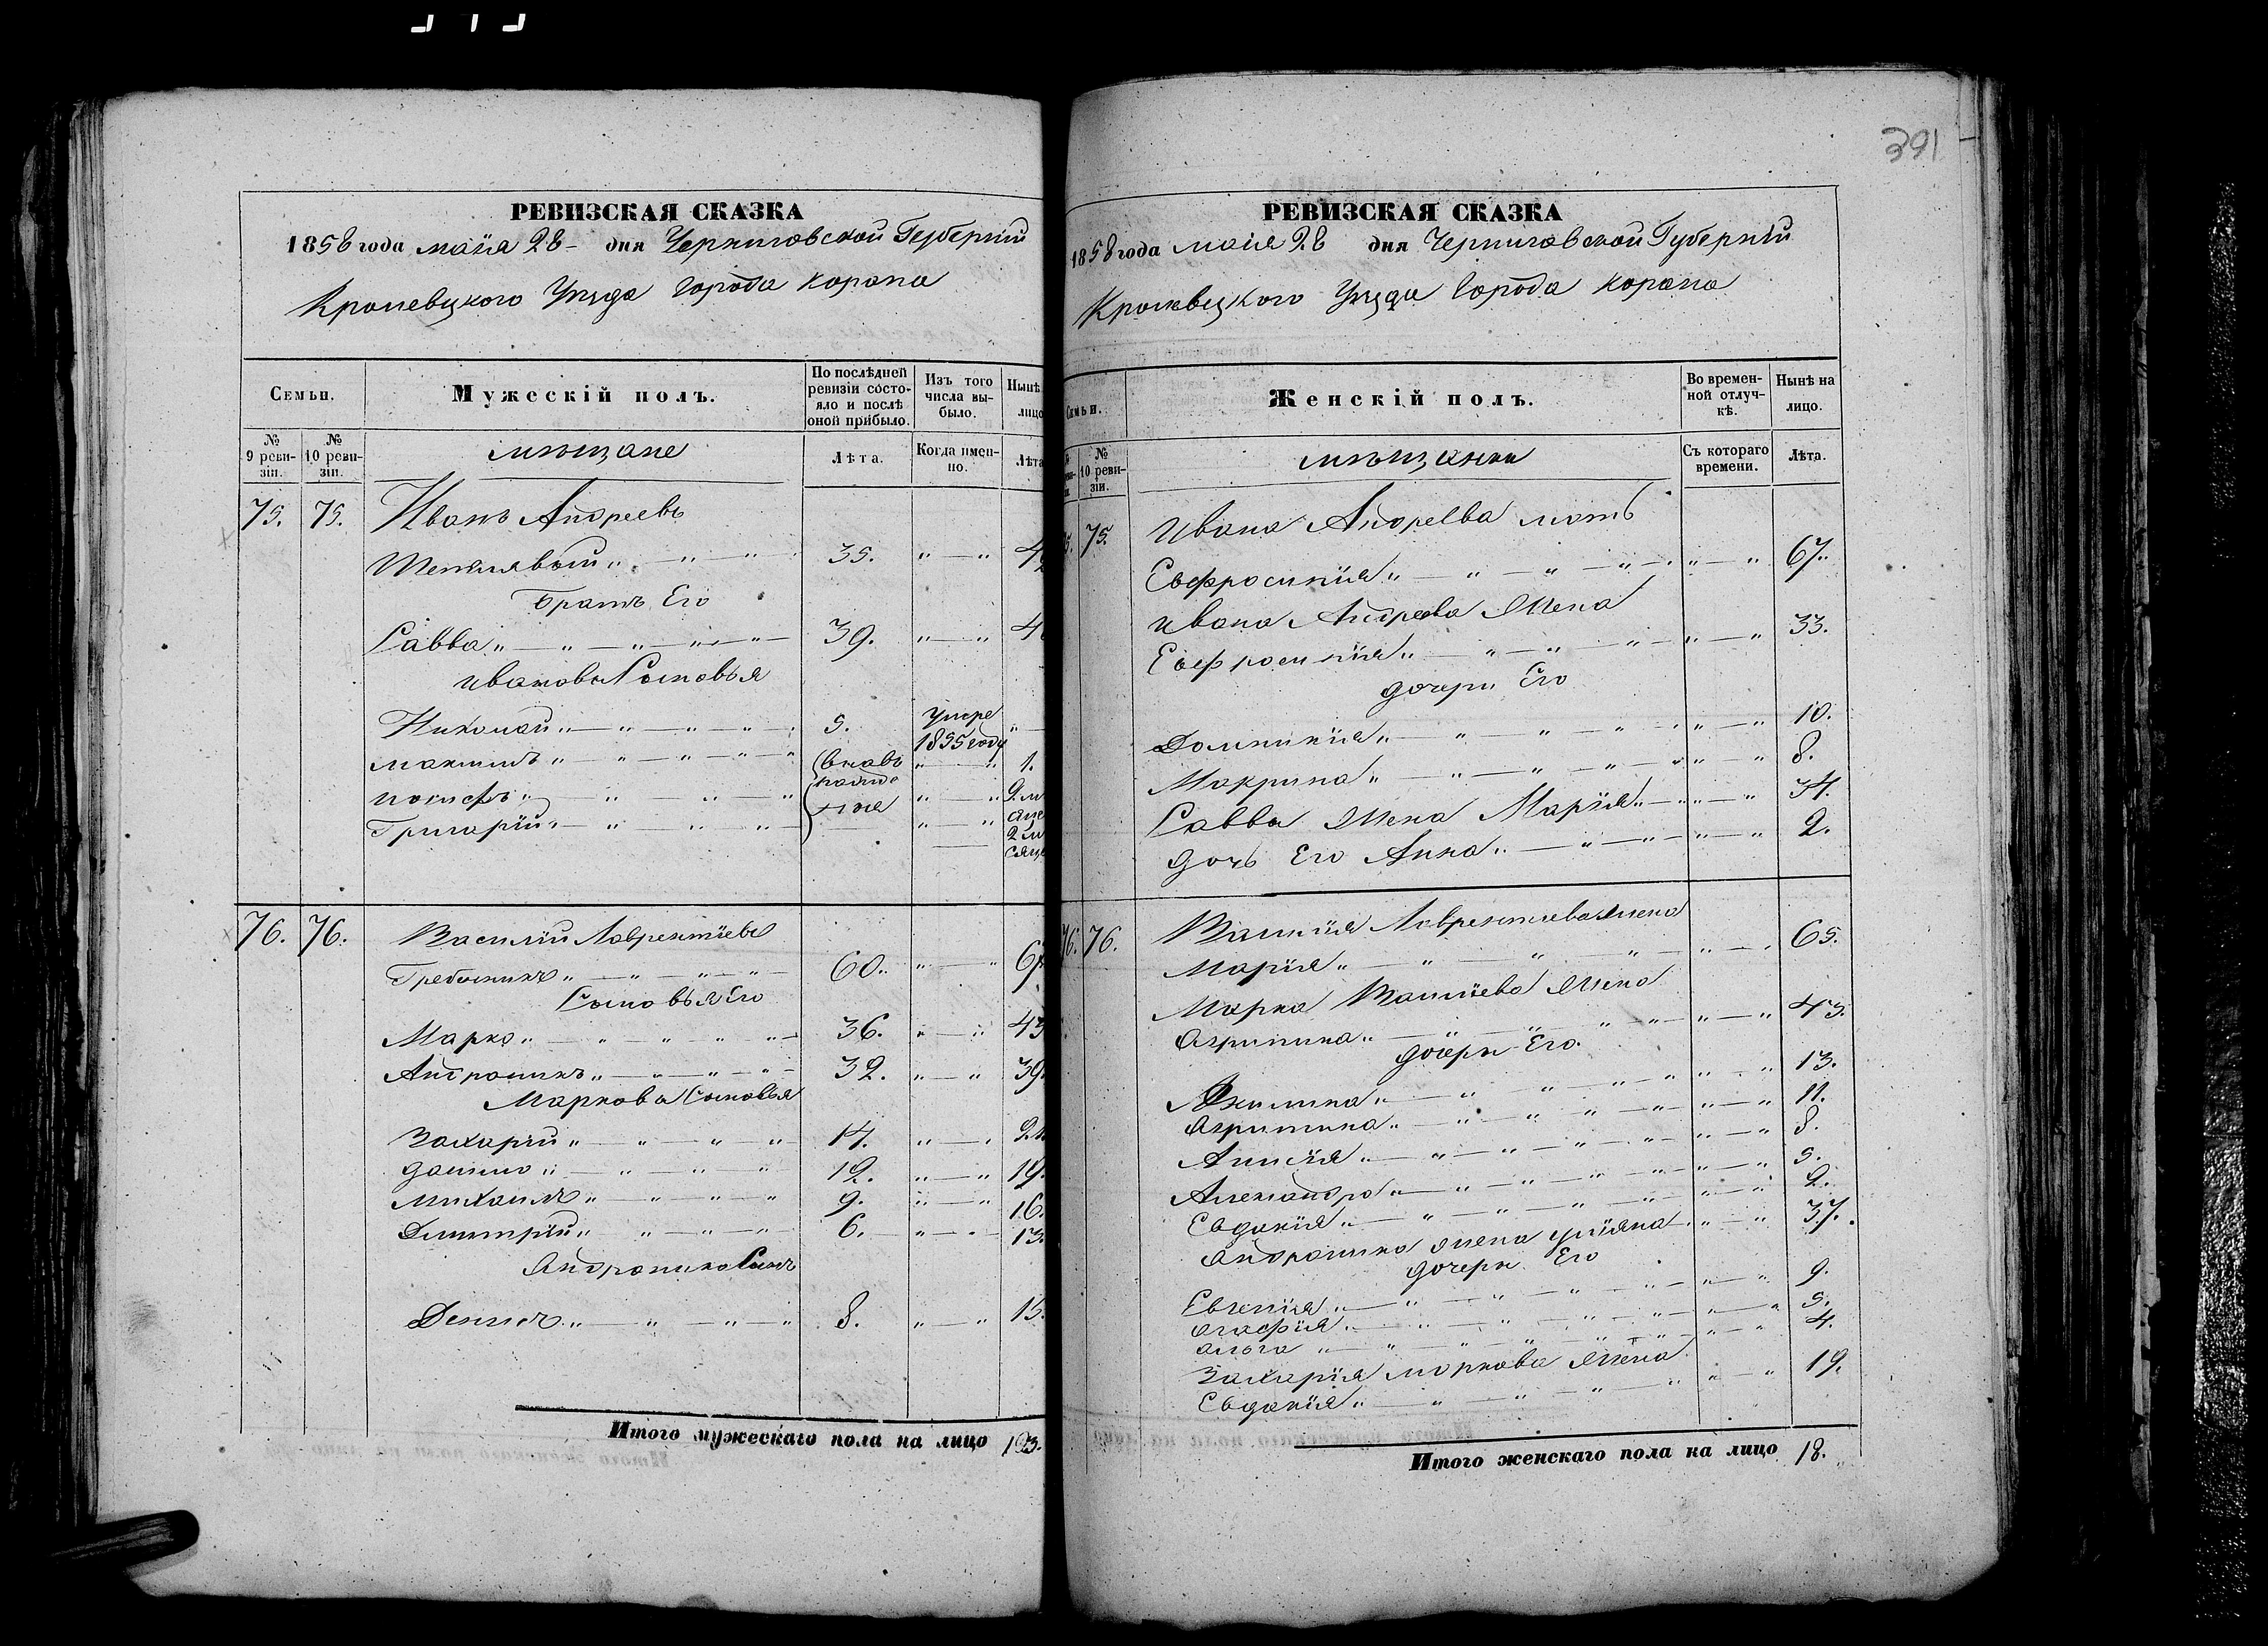 391
РЕВИЗСКАЯ СКАЗКА
1858 года маія 28 - дня Черниговской Губерніи
Кролевецкого Уезда Города Коропа
Семьи.
Мужескій полъ.
По последней ревизіи состояло и после оной прибыло.
Изъ того числа выбыло.
Ныне лицо
№ 9 ревизіи.
№ 10 ревизіи.
мещане
Лета.
Когда именно.
Лета
75. 75. Иванъ Андреевъ
35. " — "
Братъ Его
Савва " — " — " 39. " — " 4
Ивановы Сыновья
Николай " — " — " 5. умре 1855 году
Максимъ " — " — " вновь " — " 1.
Иосифъ " — " — " рожденные " — " 2 м
Григорій " — " — " " — " 2 м
76. 76. Василій Лаврентіевъ
Гребенникъ " — " — " 60. " — " 67
Сыновья Его
Марко " — " — " 36. " — " 43
Андроникъ " — " — " 32. " — " 39.
Марковы Сыновья
Захарій " — " — " 14. " — " 21
Данило " — " — " 12. " — " 19.
Михаилъ " — " — " 9. " — " 16.
Димитрій " — " — " 6. " — " 13.
Андроника Сынъ
Денисъ " — " — " 8. " — " 15.
Итого мужескаго пола на лицо 13.
РЕВИЗСКАЯ СКАЗКА
1858 года маія 28 дня Черниговской Губерніи
Кролевецкого Уезда Города Коропа
Семьи.
Женскій полъ.
Во временной отлучке.
Ныне на лицо.
№ 10 ревизіи.
мещанки
Съ котораго времени.
Лета.
75. Ивана Андреева мать
Евфросинія " — " — " — " 67.
Ивана Андреева Жена
Евфросинія " — " — " — " 33.
дочери Его
Домникія " — " — " — " 10.
Макрина " — " — " — " 8.
Саввы Жена Марія " — " 34.
дочь Его Анна " — " — " 2.
76. 76. Василія Лаврентіева Жена
Марія " — " — " — " 65.
Марка Василіева Жена
Агрипина " — " — " — " 43.
дочери Его
Акилина " — " — " — " 13.
Агрипина " — " — " — " 11.
Анисія " — " — " — " 8.
Александра " — " — " — " 5.
Евдокія " — " — " — " 2.
Андроника жена Уліяна " — " 37.
дочери Его
Евгенія " — " — " — " 9.
Агафія " — " — " — " 5.
Ольга " — " — " — " 4.
Захарія Маркова Жена
Евдокія " — " — " — " 19.
Итого женскаго пола на лицо 18.